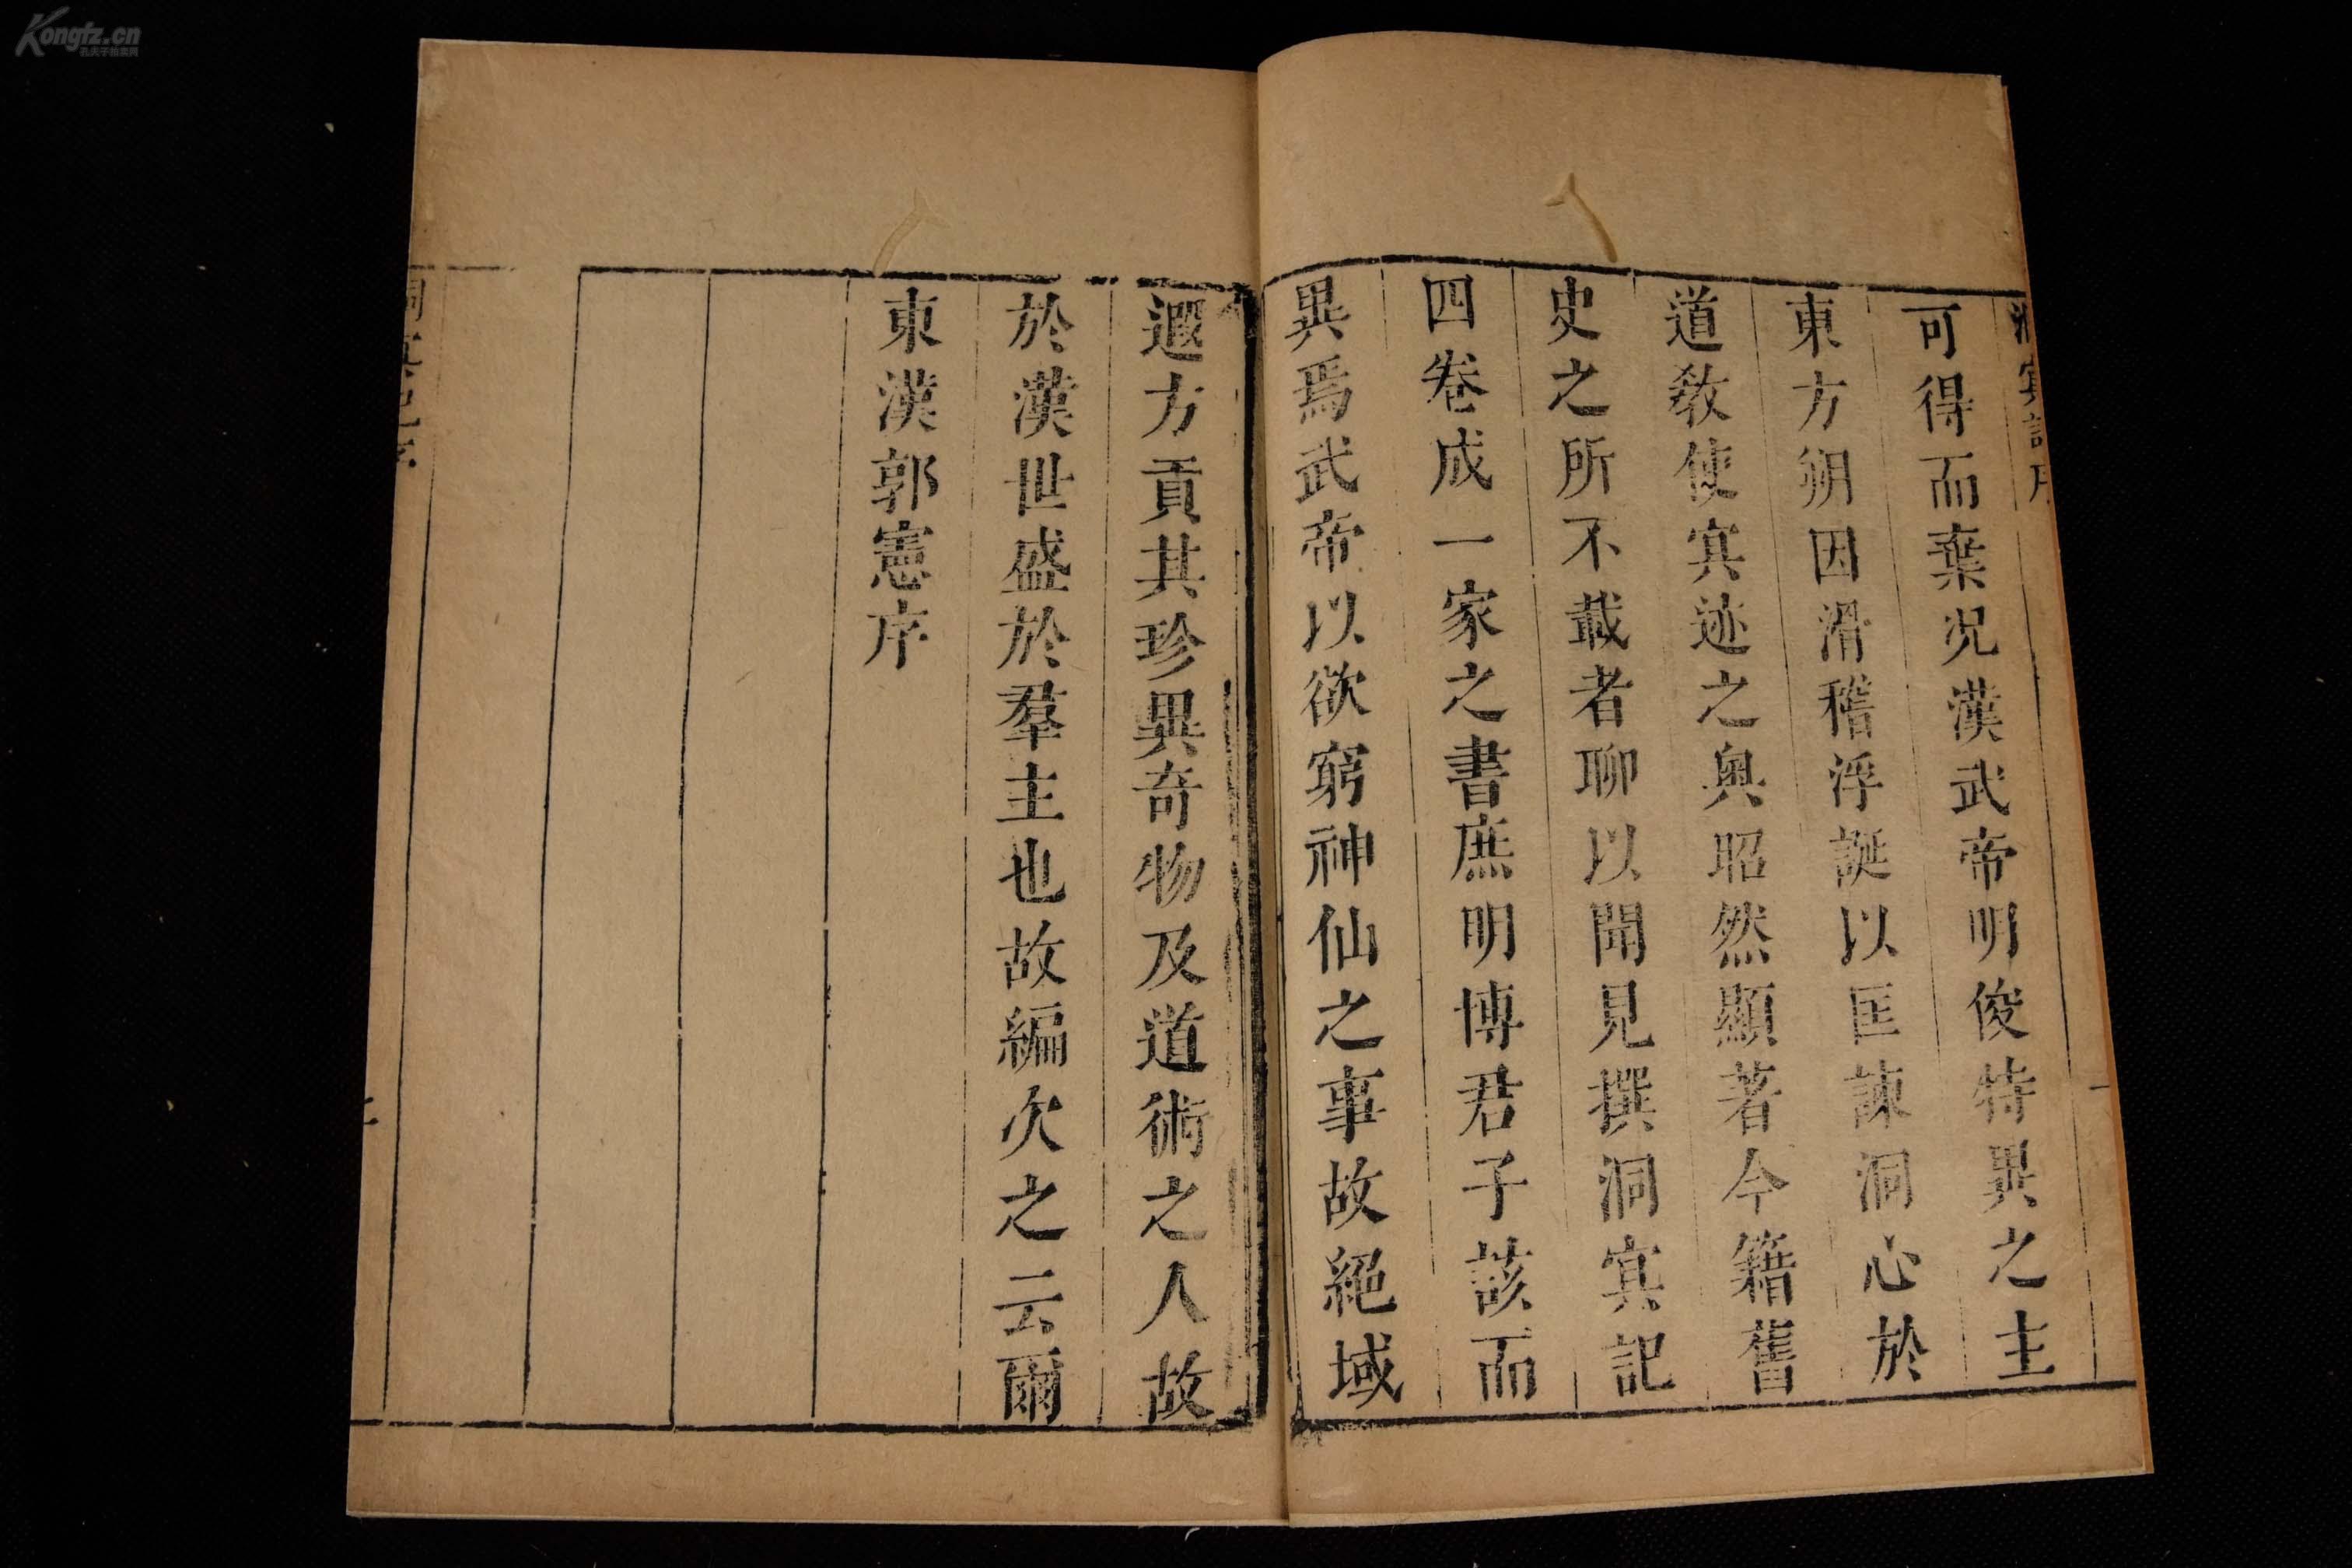 洞冥記序
可得而棄况漢武帝明俊特異之主
東方朔因滑稽浮誕以匡諫洞心於
道敎使冥迹之奥昭然顯著今籍舊
史之所不載者聊以聞見撰洞冥記
四卷成一家之書庶明博君子該而
異焉武帝以欲窮神仙之事故絕域
遐方貢其珍異奇物及道術之人故
於漢世盛於羣主也故編次之云爾
東漢郭憲序
洞冥記序
Kongfz.cn